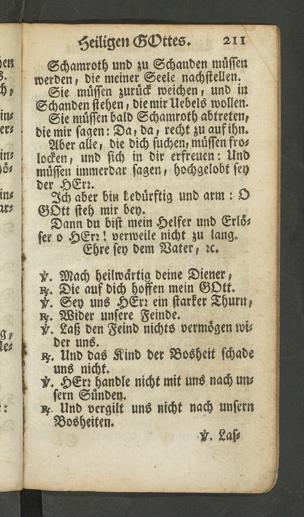 Heiligen GOttes. 211
Schamroth und zu Schanden müssen
werden, die meiner Seele nachstellen.
Sie müssen zurück weichen, und in
Schanden stehen, die mir Uebels wollen.
Sie müssen bald Schamroth abtreten,
die mir sagen: Da, da, recht zu auf ihn.
Aber alle, die dich suchen, müssen fro-
locken, und sich in dir erfreuen: Und
müssen immerdar sagen, hochgelobt sey
der HErr.
Ich aber bin bedürftig und arm: O
GOtt steh mir bey.
Dann du bist mein Helfer und Erlö-
ser o HErr! verweile nicht zu lang.
Ehre sey dem Vater, ꝛc.
℣. Mach heilwärtig deine Diener,
℟. Die auf dich hoffen mein GOtt.
℣. Sey uns HErr ein starker Thurn,
℟. Wider unsere Feinde.
℣. Laß den Feind nichts vermögen wi-
der uns.
℟. Und das Kind der Bosheit schade
uns nicht.
℣. HErr handle nicht mit uns nach un-
sern Sünden.
℟. Und vergilt uns nicht nach unsern
Bosheiten.
℣. Laß-